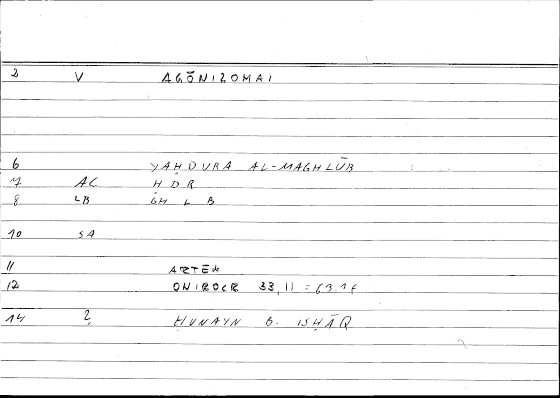 2 V AGŌNIZOMAI
6 YAḤḌURA AL-MAGHLŪB
7 AC ḤḌR
8 LB GH L B
10 SA
11 ARTEM
12 ONIROCR 33, 11 =
14 2 ḤUNAYN B. ISḤĀQ